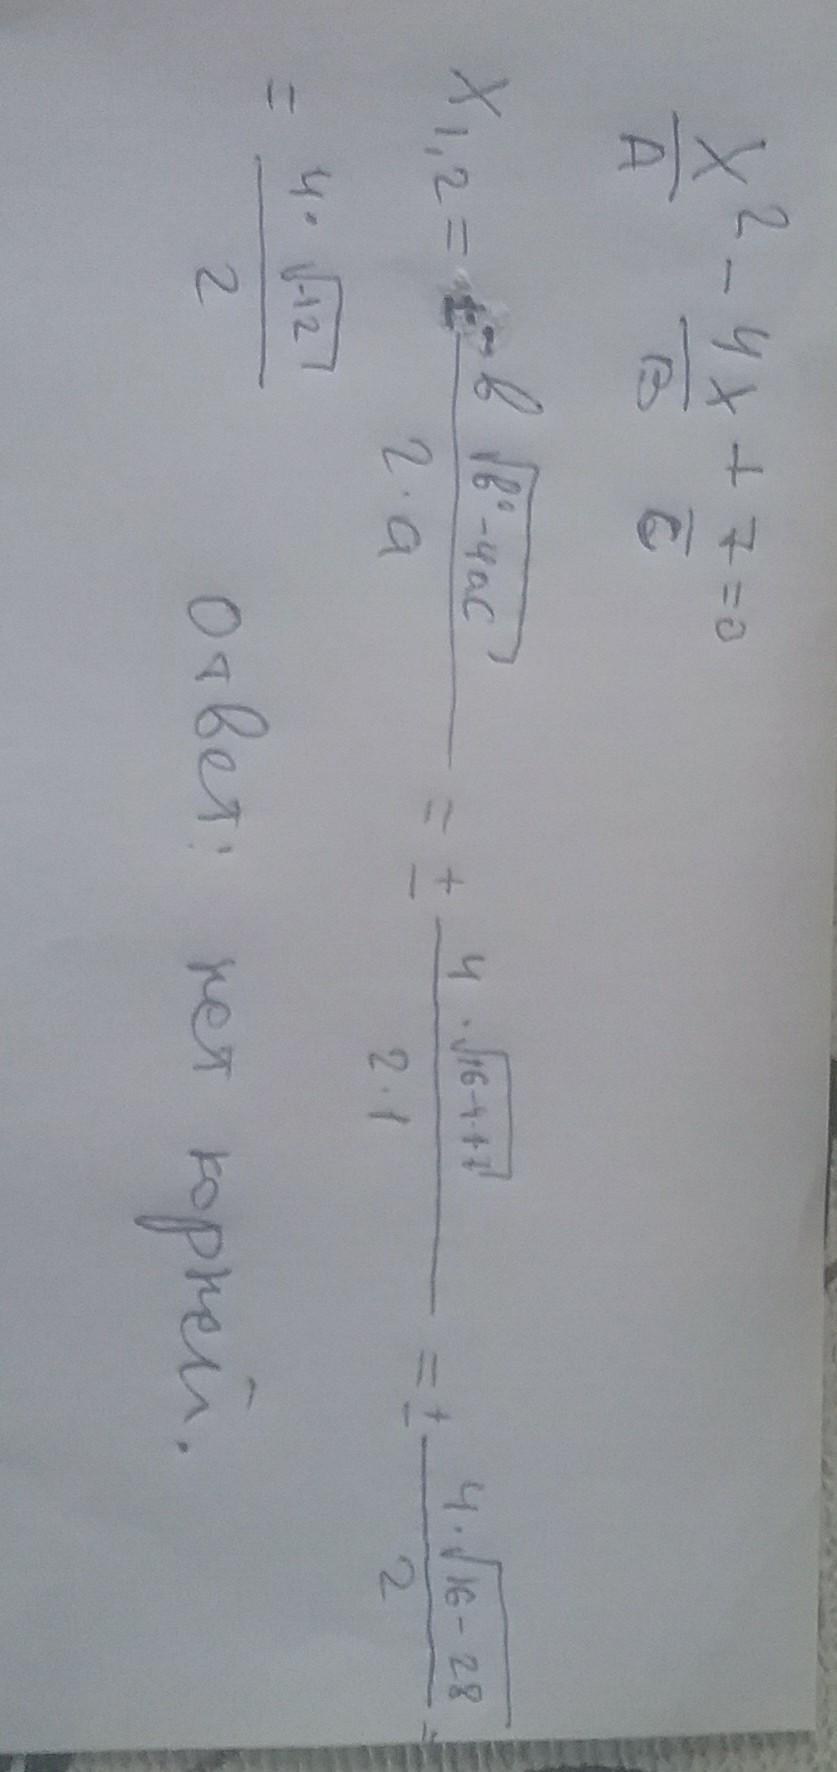 x² - 4x + 7 = 0
A B C
x₁,₂ = -в √в² - 4ac / 2·a = ± 4·√16-4·+7 / 2·1 = ± 4·√16-28 / 2 =
= 4·√-12 / 2
Ответ: нет корней.